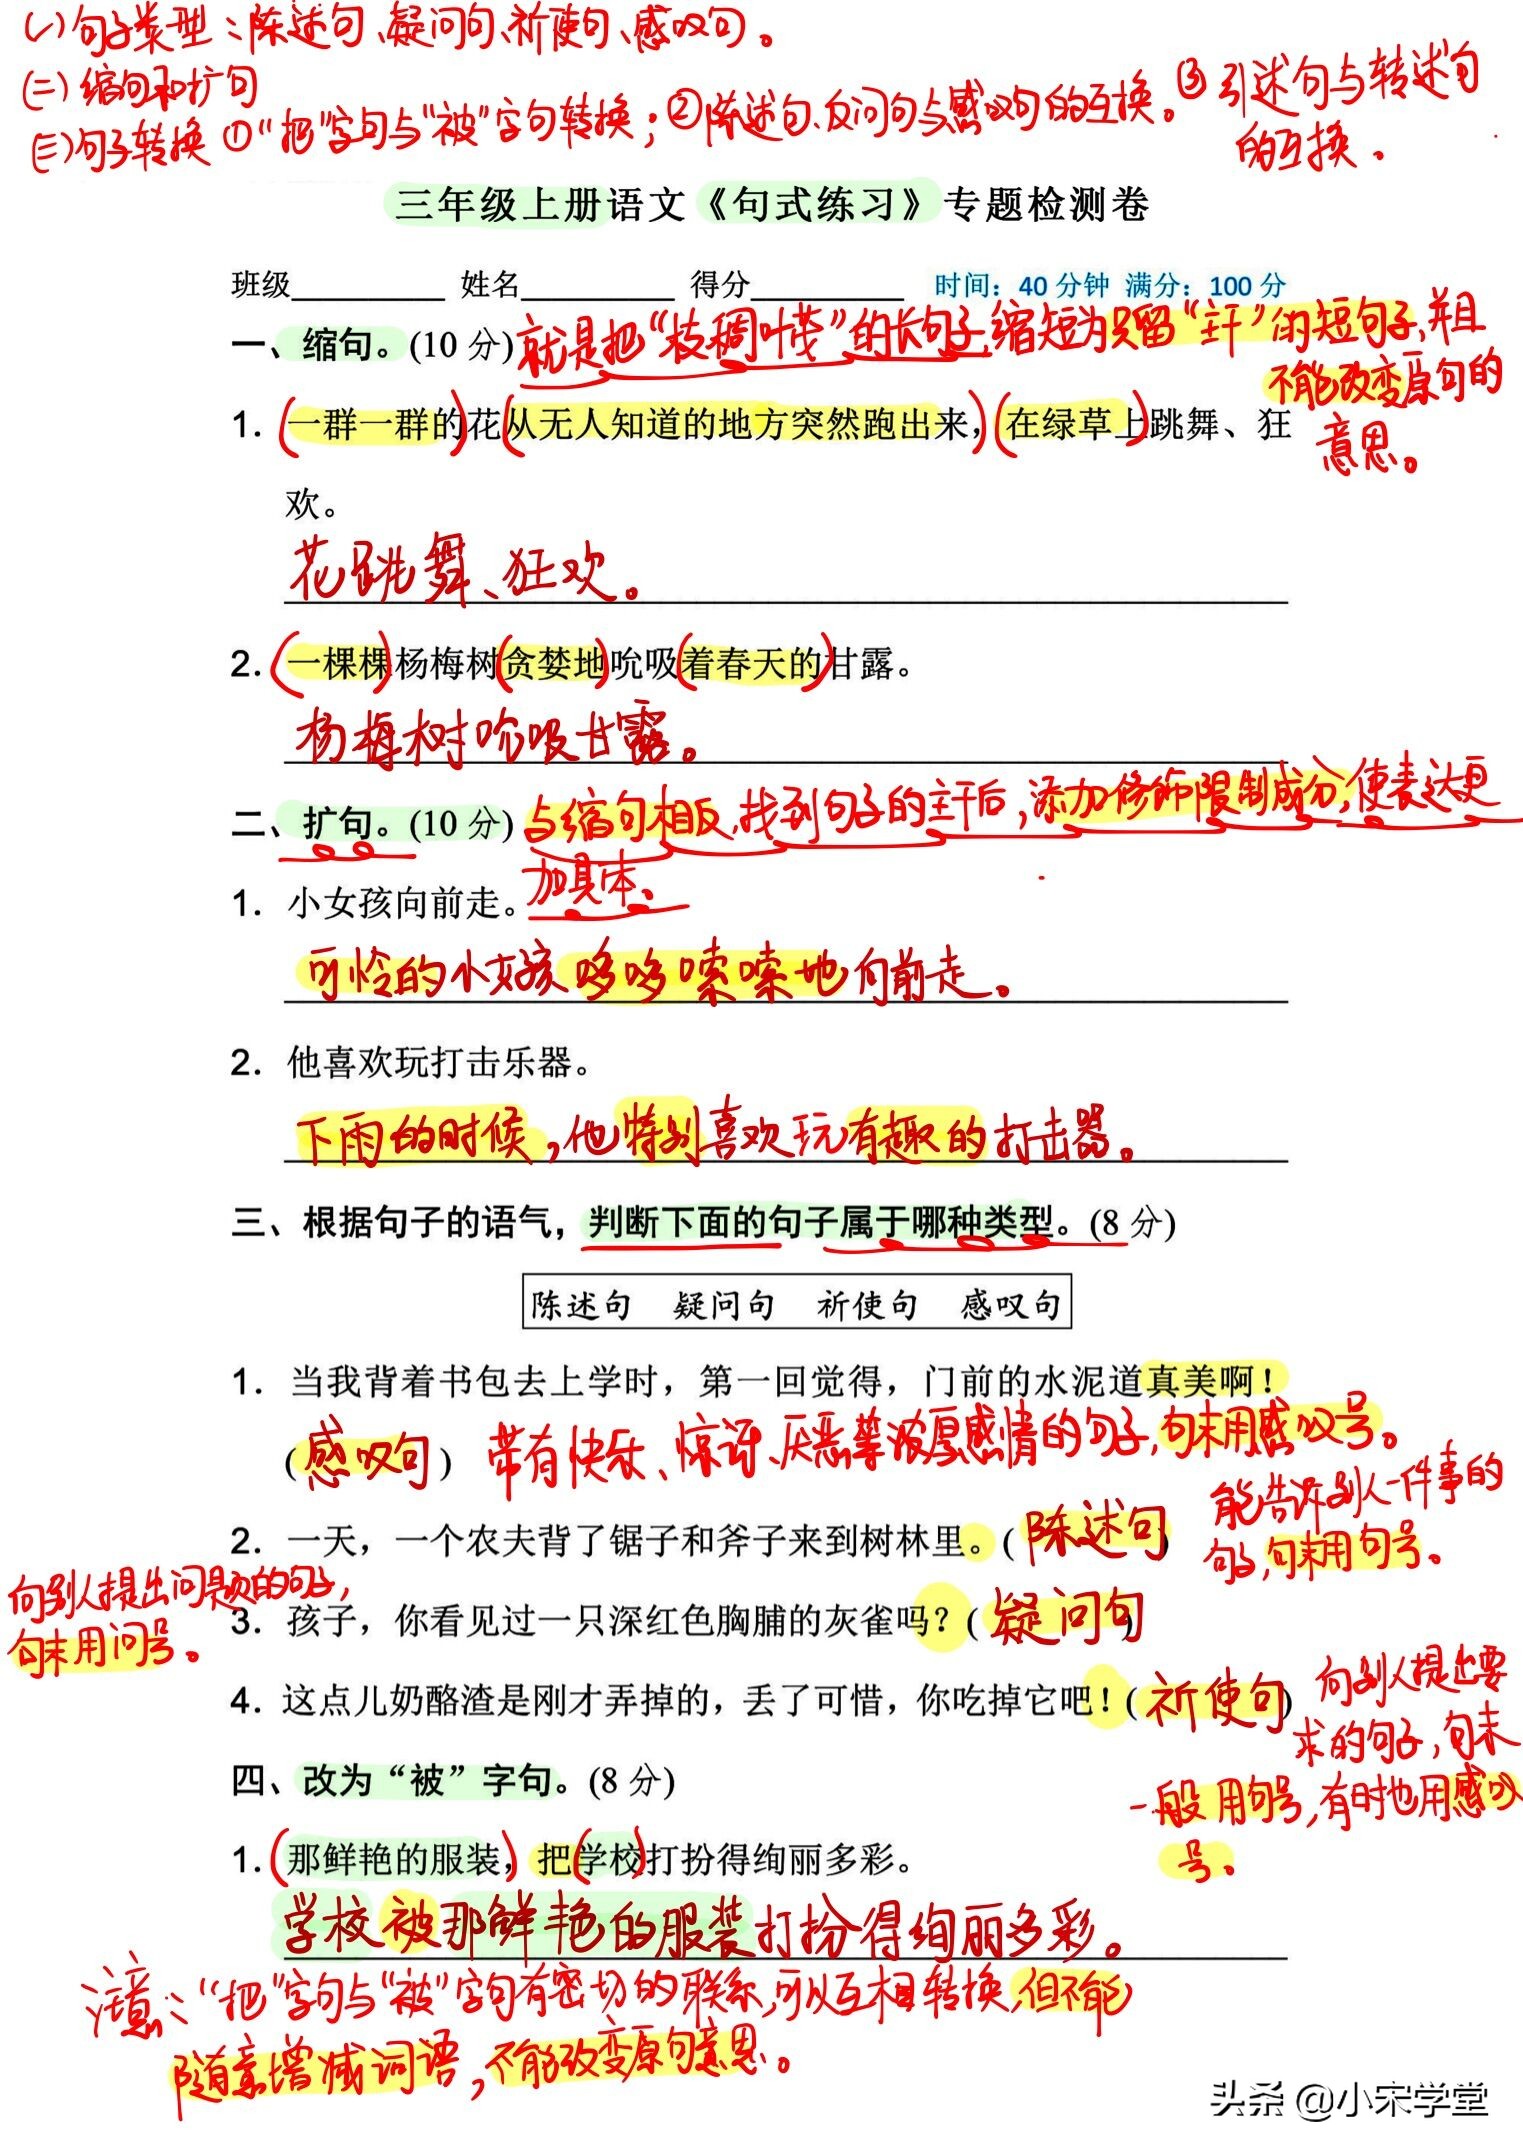 (一)句子类型：陈述句、疑问句、祈使句、感叹句。
(二)缩句和扩句
(三)句子转换①“把”字句与“被”字句转换；②陈述句、反问句与感叹句的互换。③引述句与转述句
的互换.
三年级上册语文《句式练习》专题检测卷
班级________ 姓名________ 得分________ 时间：40分钟 满分：100分
一、缩句。(10分)就是把“枝稠叶茂”的长句子,缩短为只留“主干”的短句子,并且
不能改变原句的
意思。
1. (一群一群的)花(从无人知道的地方突然跑出来,)(在绿草上)跳舞、狂
欢。
花跳舞、狂欢。
2. (一棵棵)杨梅树(贪婪地)吮吸(着春天的)甘露。
杨梅树吮吸甘露。
二、扩句。(10分)与缩句相反,找到句子的主干后,添加修饰限制成分,使表达更
加具体.
1. 小女孩向前走。
可怜的小女孩哆哆嗦嗦地向前走。
2. 他喜欢玩打击乐器。
下雨的时候,他特别喜欢玩有趣的打击器。
三、根据句子的语气，判断下面的句子属于哪种类型。(8分)
陈述句 疑问句 祈使句 感叹句
1. 当我背着书包去上学时，第一回觉得，门前的水泥道真美啊！
(感叹句) 带有快乐、惊讶、厌恶等浓厚感情的句子,句末用感叹号。
能告诉别人一件事的
句子,句末用句号。
2. 一天，一个农夫背了锯子和斧子来到树林里。(陈述句)
向别人提出问题的句子,
句末用问号。
3. 孩子，你看见过一只深红色胸脯的灰雀吗？(疑问句)
4. 这点儿奶酪渣是刚才弄掉的，丢了可惜，你吃掉它吧！(祈使句)
向别人提出要
求的句子,句末
一般用句号,有时也用感叹
号。
四、改为“被”字句。(8分)
1. (那鲜艳的服装)，把(学校)打扮得绚丽多彩。
学校被那鲜艳的服装打扮得绚丽多彩。
注意：“把”字句与“被”字句有密切的联系,可以互相转换,但不能
随意增减词语,不能改变原句意思。
头条@小宋学堂